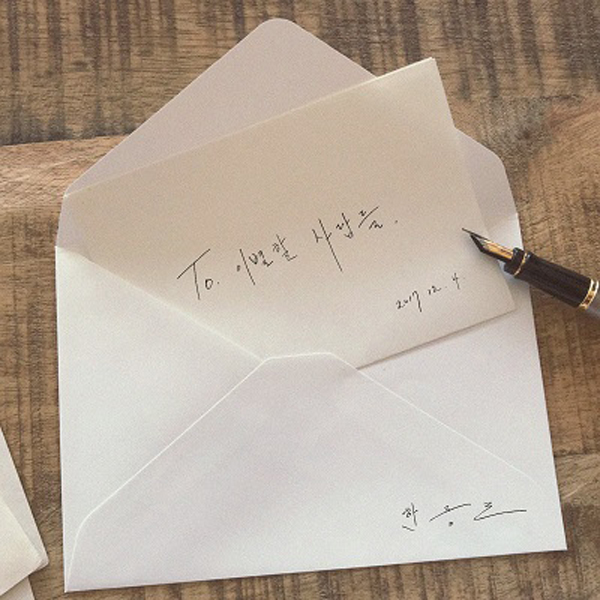 To. 이별할 사람들.
2017. 12. 4.
한동근